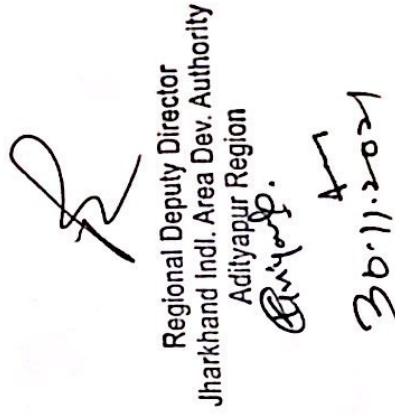 Regional Deputy Director
Jharkhand Indl. Area Dev. Authority
Adityapur Region
30.11.2021